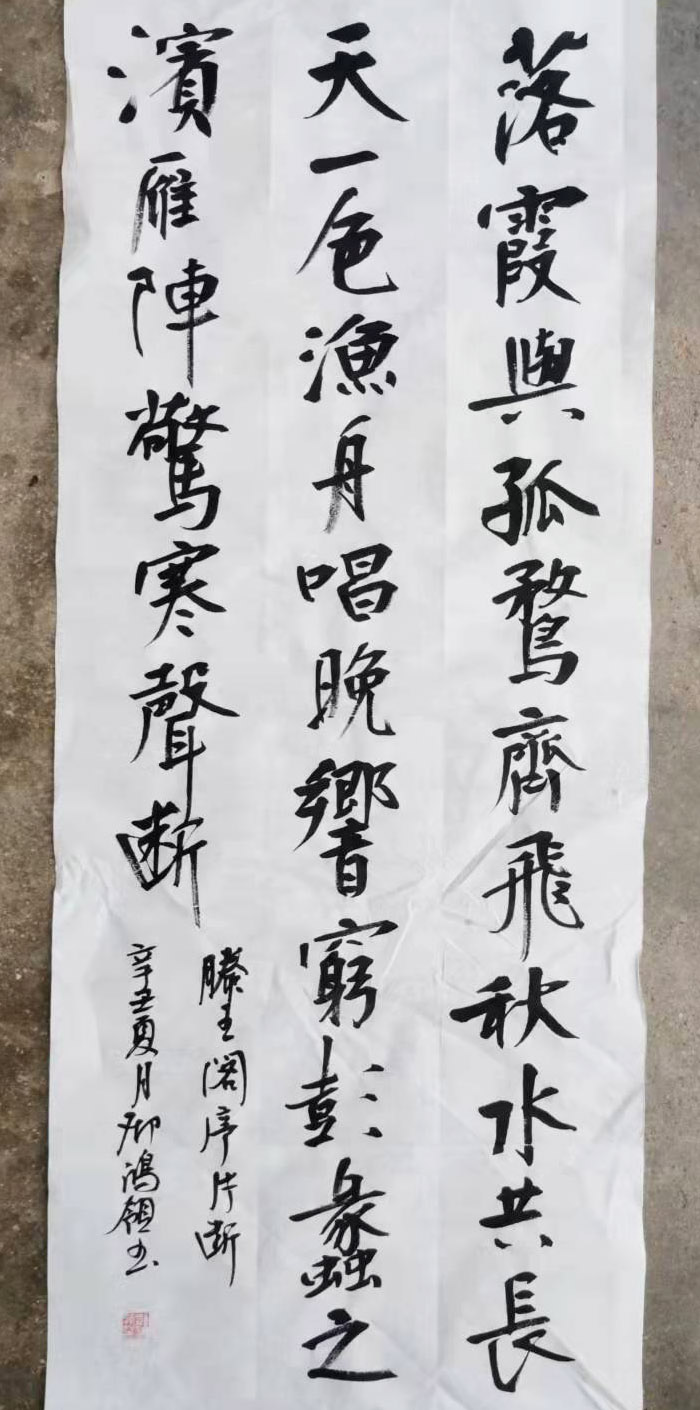 落霞與孤鶩齊飛秋水共長
天一色漁舟唱晚響窮彭蠡之
濱雁陣驚寒聲斷
滕王阁序片断
辛丑夏月鴻領书